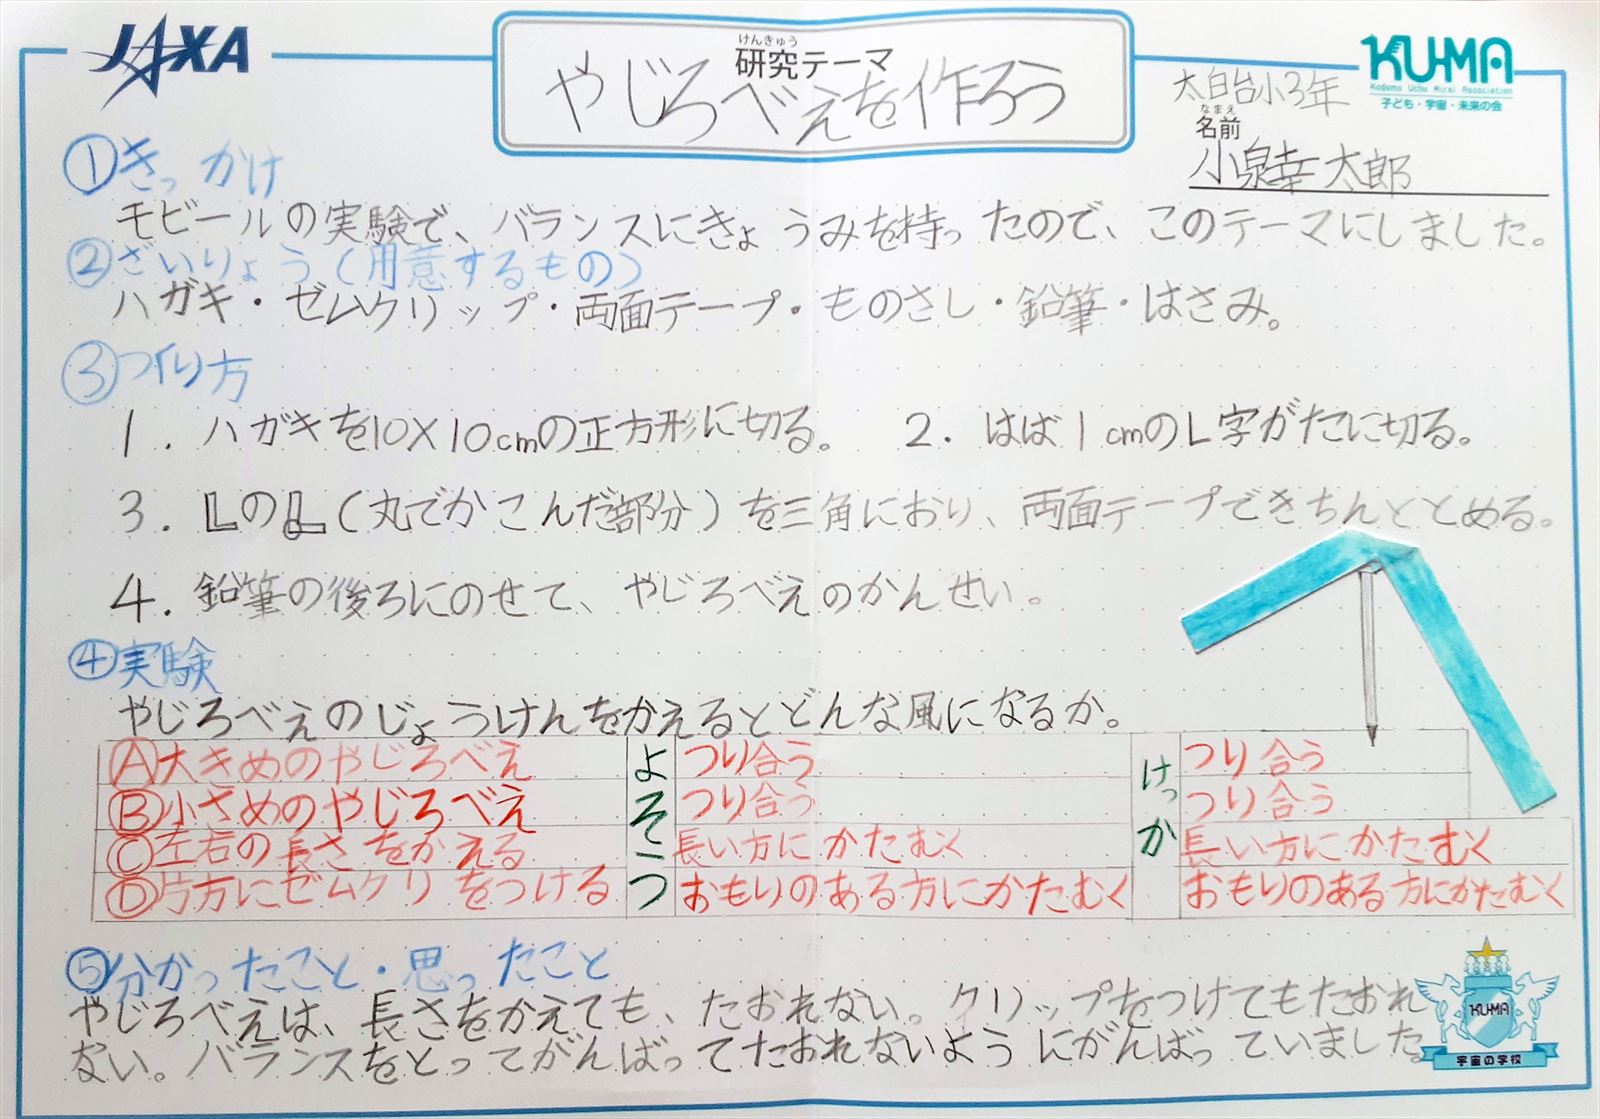 JAXA
けんきゅう
研究テーマ
やじろべえを作ろう
KU-MA
Kodomo Uchu Mirai Association
子ども・宇宙・未来の会
太白台小3年
なまえ
名前
小泉幸太郎
①きっかけ
モビールの実験で、バランスにきょうみを持ったので、このテーマにしました。
②ざいりょう(用意するもの)
ハガキ・ゼムクリップ・両面テープ・ものさし・鉛筆・はさみ。
③つくり方
1.ハガキを10×10cmの正方形に切る。 2.はば1cmのL字がたに切る。
3.LのL(丸でかこんだ部分)を三角におり、両面テープできちんととめる。
4.鉛筆の後ろにのせて、やじろべえのかんせい。
④実験
やじろべえのじょうけんをかえるとどんな風になるか。
よそう
けっか
Ⓐ大きめのやじろべえ つり合う つり合う
Ⓑ小さめのやじろべえ つり合う つり合う
Ⓒ左右の長さをかえる 長い方にかたむく 長い方にかたむく
Ⓓ片方にゼムクリをつける おもりのある方にかたむく おもりのある方にかたむく
⑤分かったこと・思ったこと
やじろべえは、長さをかえても、たおれない。クリップをつけてもたおれ
ない。バランスをとってがんばってたおれないようにがんばっていました。
KU-MA
宇宙の学校